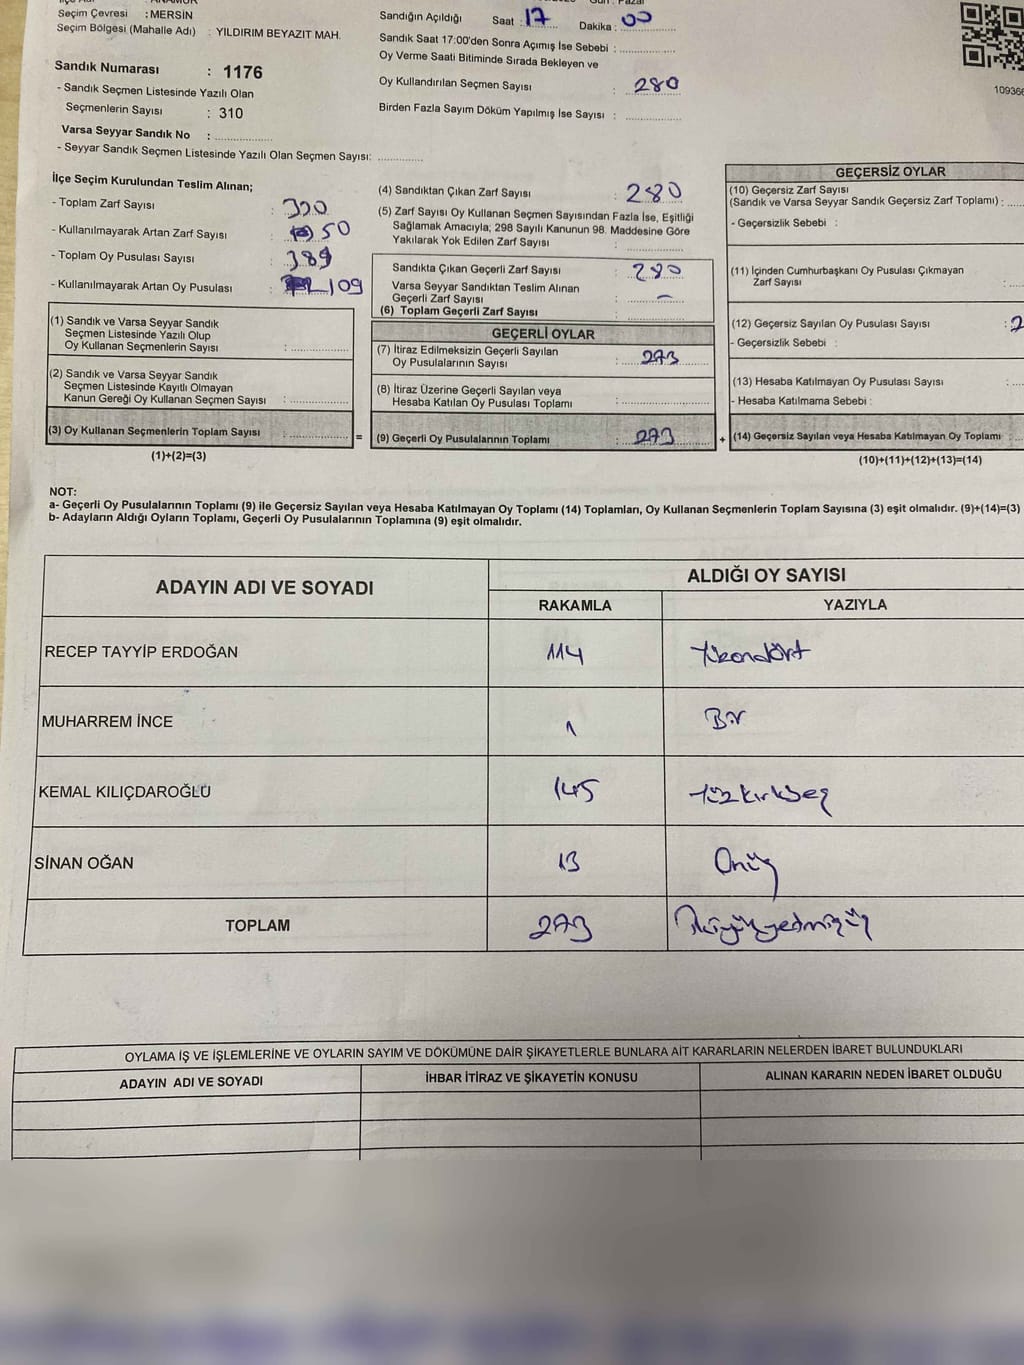 Seçim Çevresi : MERSİN
Seçim Bölgesi (Mahalle Adı) : YILDIRIM BEYAZIT MAH.
Sandık Numarası : 1176
- Sandık Seçmen Listesinde Yazılı Olan
Seçmenlerin Sayısı : 310
Varsa Seyyar Sandık No :
- Seyyar Sandık Seçmen Listesinde Yazılı Olan Seçmen Sayısı:
Sandığın Açıldığı Saat : 17 Dakika : 00
Sandık Saat 17:00'den Sonra Açımış İse Sebebi :
Oy Verme Saati Bitiminde Sırada Bekleyen ve
Oy Kullandırılan Seçmen Sayısı : 280
Birden Fazla Sayım Döküm Yapılmış İse Sayısı :
10936
İlçe Seçim Kurulundan Teslim Alınan;
- Toplam Zarf Sayısı :
- Kullanılmayarak Artan Zarf Sayısı : 50
- Toplam Oy Pusulası Sayısı : 389
- Kullanılmayarak Artan Oy Pusulası : 109
(1) Sandık ve Varsa Seyyar Sandık
Seçmen Listesinde Yazılı Olup
Oy Kullanan Seçmenlerin Sayısı :
(2) Sandık ve Varsa Seyyar Sandık
Seçmen Listesinde Kayıtlı Olmayan
Kanun Gereği Oy Kullanan Seçmen Sayısı :
(3) Oy Kullanan Seçmenlerin Toplam Sayısı : =
(1)+(2)=(3)
(4) Sandıktan Çıkan Zarf Sayısı : 280
(5) Zarf Sayısı Oy Kullanan Seçmen Sayısından Fazla İse, Eşitliği
Sağlamak Amacıyla; 298 Sayılı Kanunun 98. Maddesine Göre
Yakılarak Yok Edilen Zarf Sayısı :
Sandıkta Çıkan Geçerli Zarf Sayısı : 280
Varsa Seyyar Sandıktan Teslim Alınan
Geçerli Zarf Sayısı : -
(6) Toplam Geçerli Zarf Sayısı :
GEÇERLİ OYLAR
(7) İtiraz Edilmeksizin Geçerli Sayılan
Oy Pusulalarının Sayısı : 273
(8) İtiraz Üzerine Geçerli Sayılan veya
Hesaba Katılan Oy Pusulası Toplamı :
(9) Geçerli Oy Pusulalarının Toplamı : 273 +
GEÇERSİZ OYLAR
(10) Geçersiz Zarf Sayısı
(Sandık ve Varsa Seyyar Sandık Geçersiz Zarf Toplamı) :
- Geçersizlik Sebebi :
(11) İçinden Cumhurbaşkanı Oy Pusulası Çıkmayan
Zarf Sayısı :
(12) Geçersiz Sayılan Oy Pusulası Sayısı :
- Geçersizlik Sebebi :
(13) Hesaba Katılmayan Oy Pusulası Sayısı :
- Hesaba Katılmama Sebebi :
(14) Geçersiz Sayılan veya Hesaba Katılmayan Oy Toplamı :
(10)+(11)+(12)+(13)=(14)
NOT:
a- Geçerli Oy Pusulalarının Toplamı (9) ile Geçersiz Sayılan veya Hesaba Katılmayan Oy Toplamı (14) Toplamları, Oy Kullanan Seçmenlerin Toplam Sayısına (3) eşit olmalıdır. (9)+(14)=(3)
b- Adayların Aldığı Oyların Toplamı, Geçerli Oy Pusulalarının Toplamına (9) eşit olmalıdır.
ADAYIN ADI VE SOYADI ALDIĞI OY SAYISI
RAKAMLA YAZIYLA
RECEP TAYYİP ERDOĞAN 114 Yüzondört
MUHARREM İNCE 1 Bir
KEMAL KILIÇDAROĞLU 145 Yüzkırkbeş
SİNAN OĞAN 13 Onüç
TOPLAM 273 İkiyüzyetmişüç
OYLAMA İŞ VE İŞLEMLERİNE VE OYLARIN SAYIM VE DÖKÜMÜNE DAİR ŞİKAYETLERLE BUNLARA AİT KARARLARIN NELERDEN İBARET BULUNDUKLARI
ADAYIN ADI VE SOYADI İHBAR İTİRAZ VE ŞİKAYETİN KONUSU ALINAN KARARIN NEDEN İBARET OLDUĞU